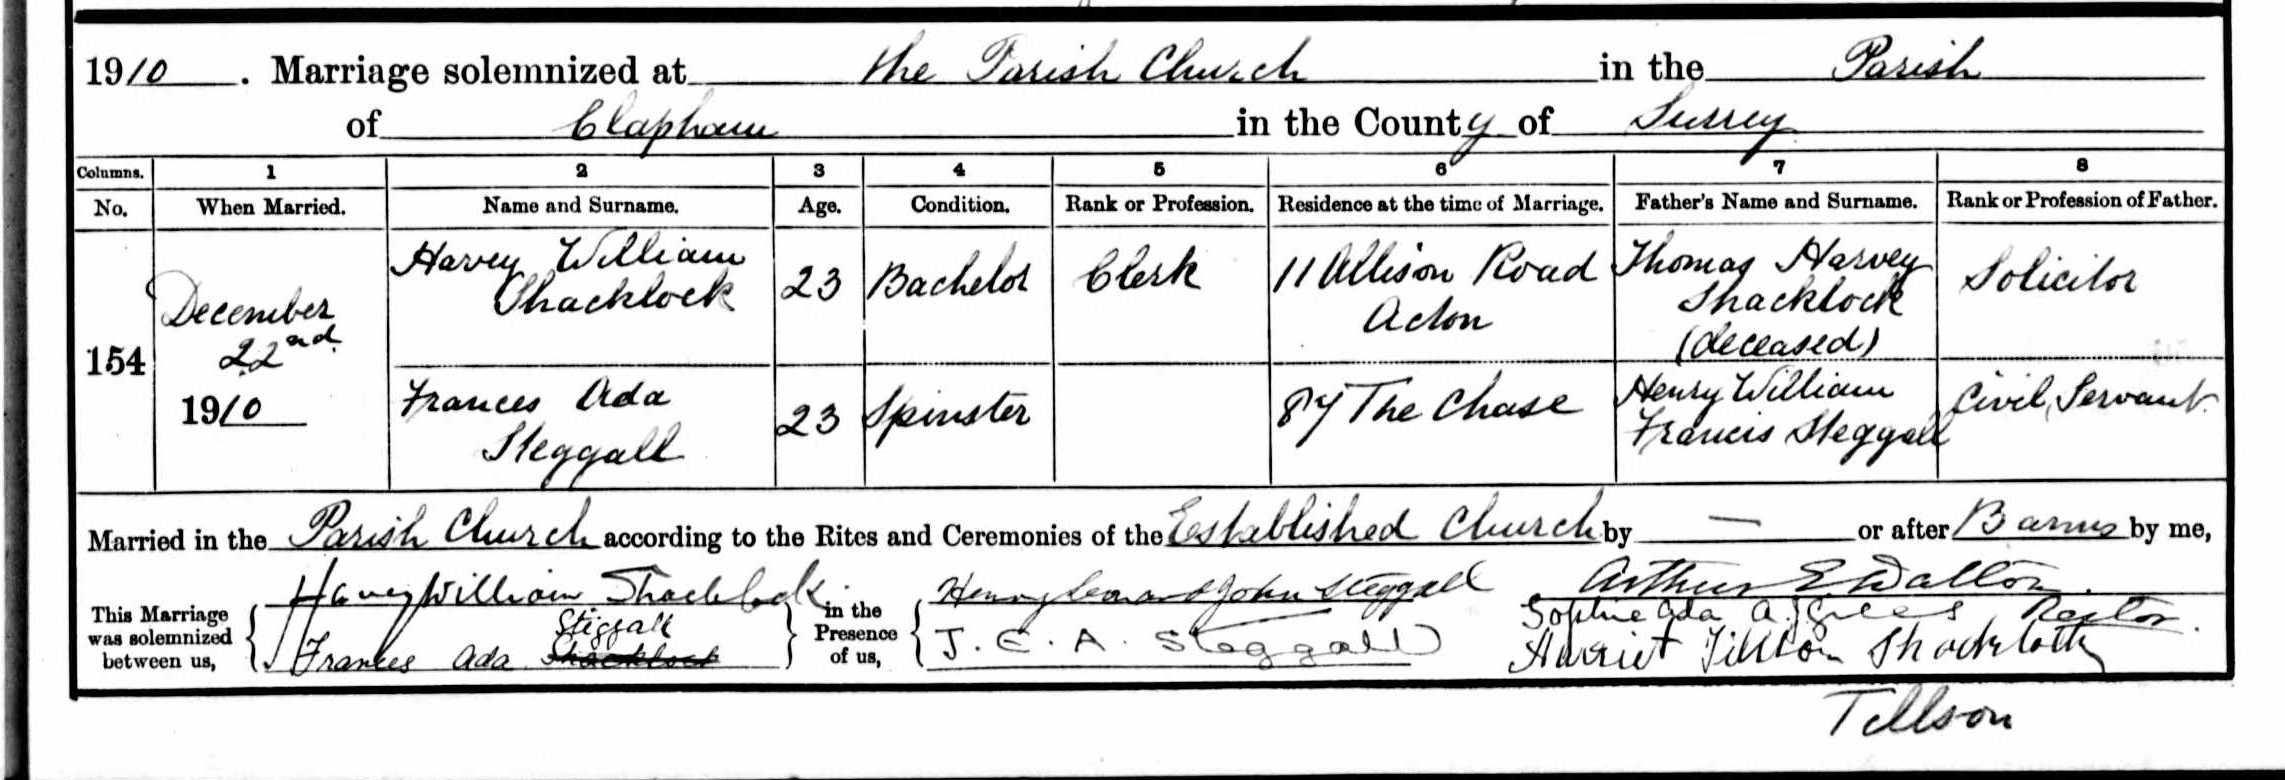 1910. Marriage solemnized at the Parish Church in the Parish
of Clapham in the County of Surrey
Columns. 1 2 3 4 5 6 7 8
No. When Married. Name and Surname. Age. Condition. Rank or Profession. Residence at the time of Marriage. Father's Name and Surname. Rank or Profession of Father.
154
December
22nd
1910
Harvey William
Shacklock
23
Bachelor
Clerk
11 Allison Road
Acton
Thomas Harvey
Shacklock
(deceased)
Solicitor
Frances Ada
Steggall
23
Spinster
87 The Chase
Henry William
Francis Steggall
Civil Servant
Married in the Parish Church according to the Rites and Ceremonies of the Established Church by — or after Banns by me,
This Marriage
was solemnized
between us,
Harvey William Shacklock
Steggall
Frances Ada Shacklock
in the
Presence
of us,
Henry Leonard John Steggall
J. E. A. Steggall
Arthur E. Dalton
Sophie Ada Rector.
Harriet Tillson Shacklock
Tillson